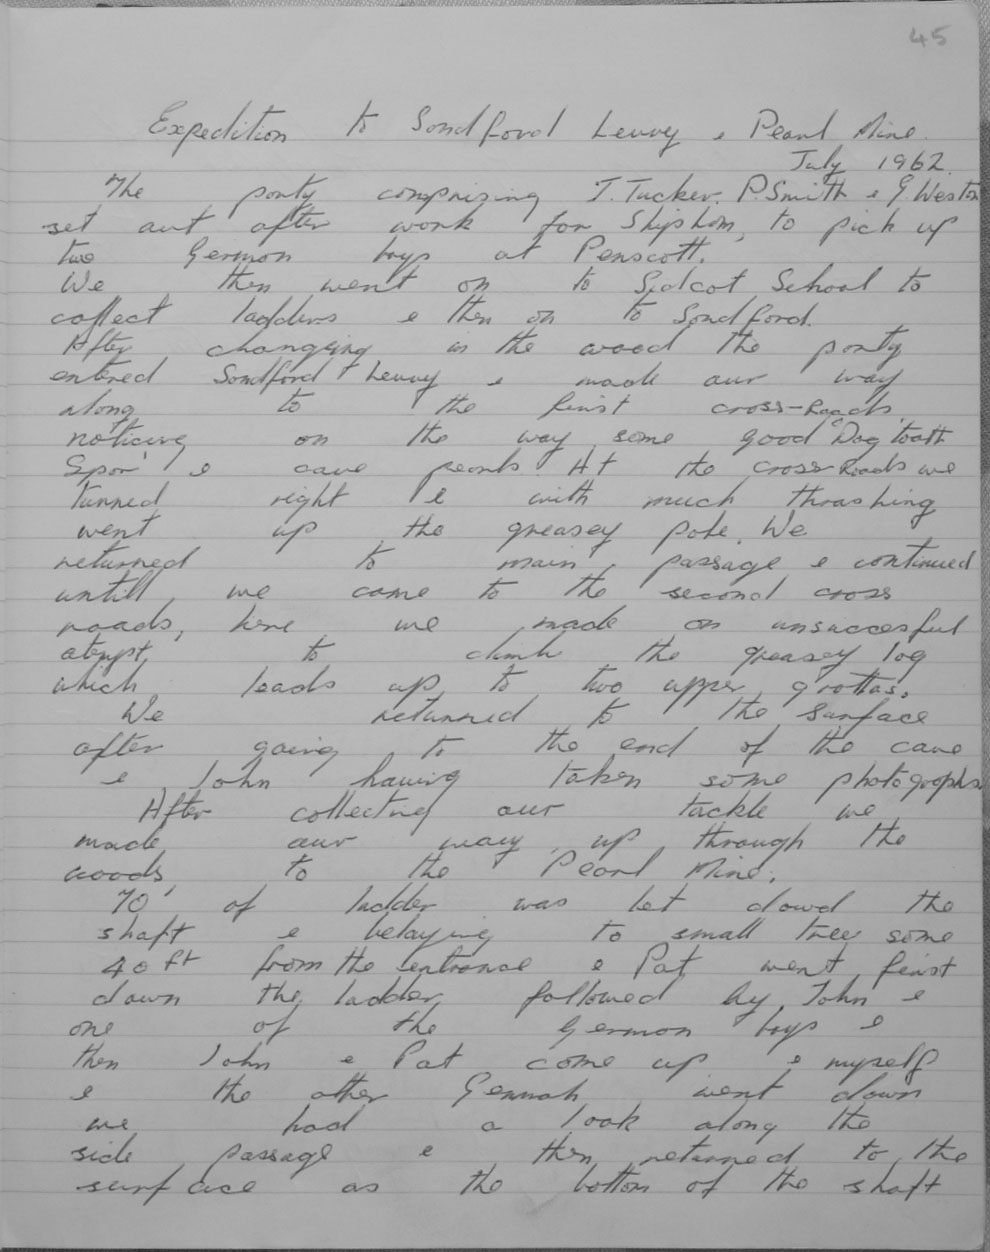 45
Expedition to Sandford Levvy & Pearl Mine.
July 1962.
The party comprising J. Tucker. P. Smith & G. Weston
set out after work for Shipham, to pick up
two German boys at Penscott.
We then went on to Sidcot School to
collect ladders & then on to Sandford.
After changing in the wood the party
entered Sandford Levvy & made our way
along to the first cross-Roads,
noticing on the way some good "Dog tooth
Spar" & cave pearls. At the cross Roads we
turned right & with much thrashing
went up the greasey pole. We
returned to main passage & continued
untill we came to the second cross
roads, here we made an unsuccesful
atempt to climb the greasey log
which leads up to two upper grottas.
We returned to the surface
after going to the end of the cave
& John having taken some photographs.
After collecting our tackle we
made our way up through the
woods to the Pearl Mine.
70' of ladder was let dowd the
shaft & belaying to small tree some
40 ft from the entrance & Pat went first
down the ladder followed by John &
one of the German boys &
then John & Pat come up & myself
& the other German went down
we had a look along the
side passage & then returned to the
surface as the bottom of the shaft